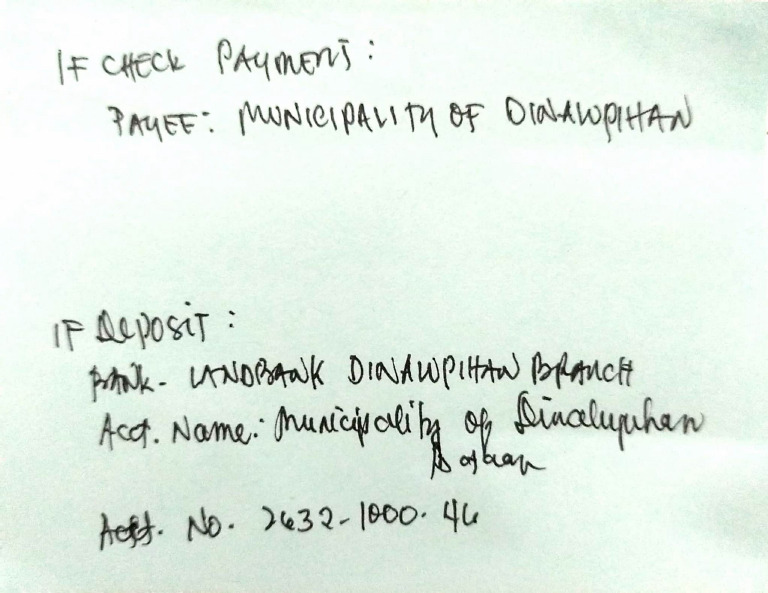 IF CHECK PAYMENT:
PAYEE: MUNICIPALITY OF DINALUPIHAN
IF DEPOSIT:
BANK- LANDBANK DINALUPIHAN BRANCH
Acct. Name: Municipality of Dinalupihan
Bataan
Acct. No. 2632-1000-46